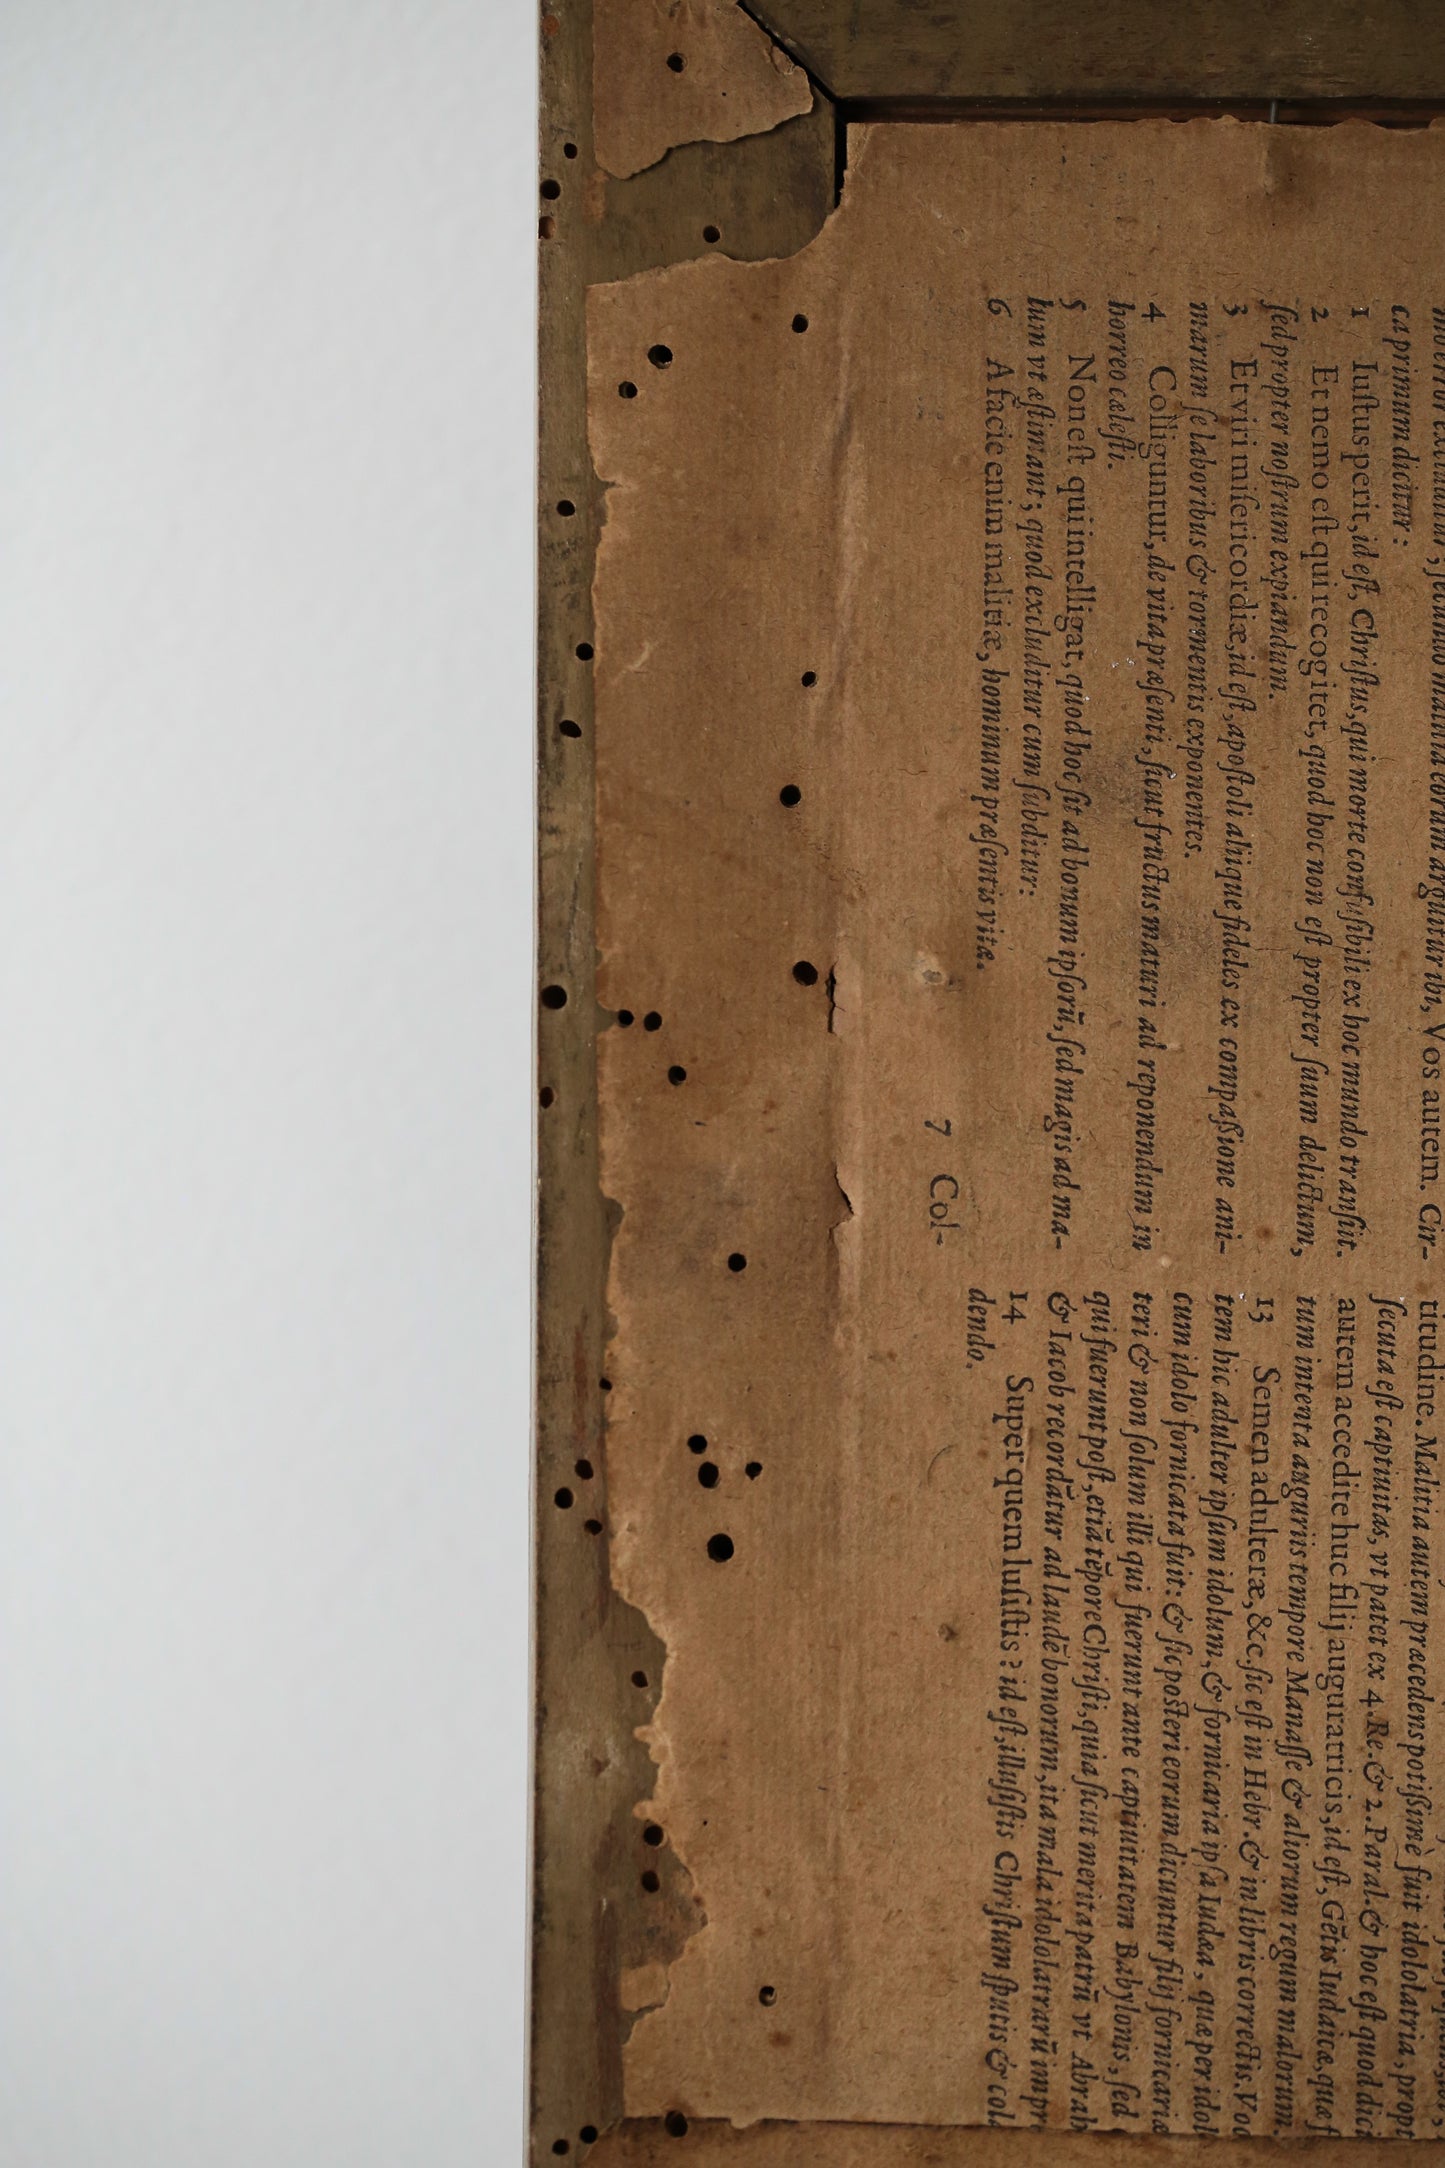 ca primum dicitur:
1 Iuſtus perit, id eſt, Chriſtus, qui morte confuſibili ex hoc mundo tranſiit.
2 Et nemo eſt qui recogitet, quod hoc non eſt propter ſuum delictum,
ſed propter noſtrum expiandum.
3 Et viri miſericordiæ, id eſt, apoſtoli aliique fideles ex compaſſione ani-
marum ſe laboribus & tormentis exponentes.
4 Colliguntur, de vita præſenti, ſicut fructus maturi ad reponendum in
horreo cæleſti.
5 Non eſt qui intelligat, quod hoc ſit ad bonum ipſorū, ſed magis ad ma-
lum vt æſtimant; quod excluditur cum ſubditur:
6 A facie enim malitiæ, hominum præſentis vitæ.
7 Col-
titudine. Malitia autem præcedens potiſſimè fuit idololatria, propt
ſecuta eſt captiuitas, vt patet ex 4. Re. & 2. Paral. & hoc eſt quod dici
autem accedite huc filij auguratricis, id eſt, Gētis Iudaicæ, quæ f
tum intenta auguriis tempore Manaſſe & aliorum regum malorum.
13 Semen adulteræ, &c. ſic eſt in Hebr. & in libris correctis. Vo
tem hic adulter ipſum idolum, & fornicaria ipſa Iudæa, quæ per idol
cum idolo fornicata fuit: & ſic poſteri eorum dicuntur filij fornicariæ
teri & non ſolum illi qui fuerunt ante captiuitatem Babylonis, ſed
qui fuerunt poſt, etiā tēpore Chriſti, quia ſicut merita patrū vt Abrah
& Iacob recordātur ad laudē bonorum, ita mala idololatrarū impr
14 Super quem luſiſtis? id eſt, illuſiſtis Chriſtum ſputis & cola
dendo.